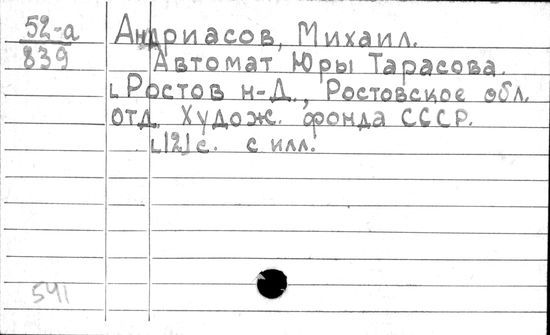 52-а
839
Андриасов, Михаил.
Автомат Юры Тарасова.
[Ростов н-Д., Ростовское обл.
отд. Худож. фонда СССР.
[12] с. с илл.
541